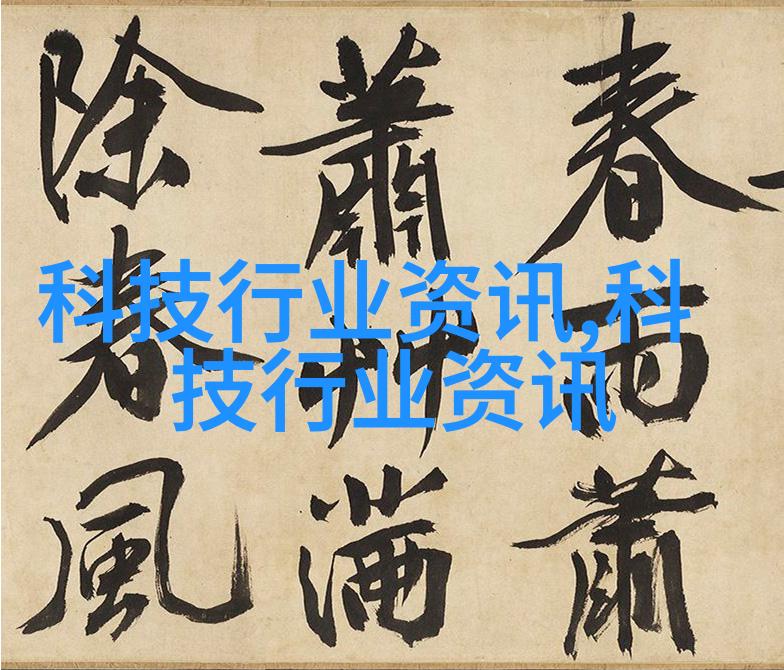 春雨蕭
蕭艸滿
除春風
科技行业资讯,科
技行业资讯